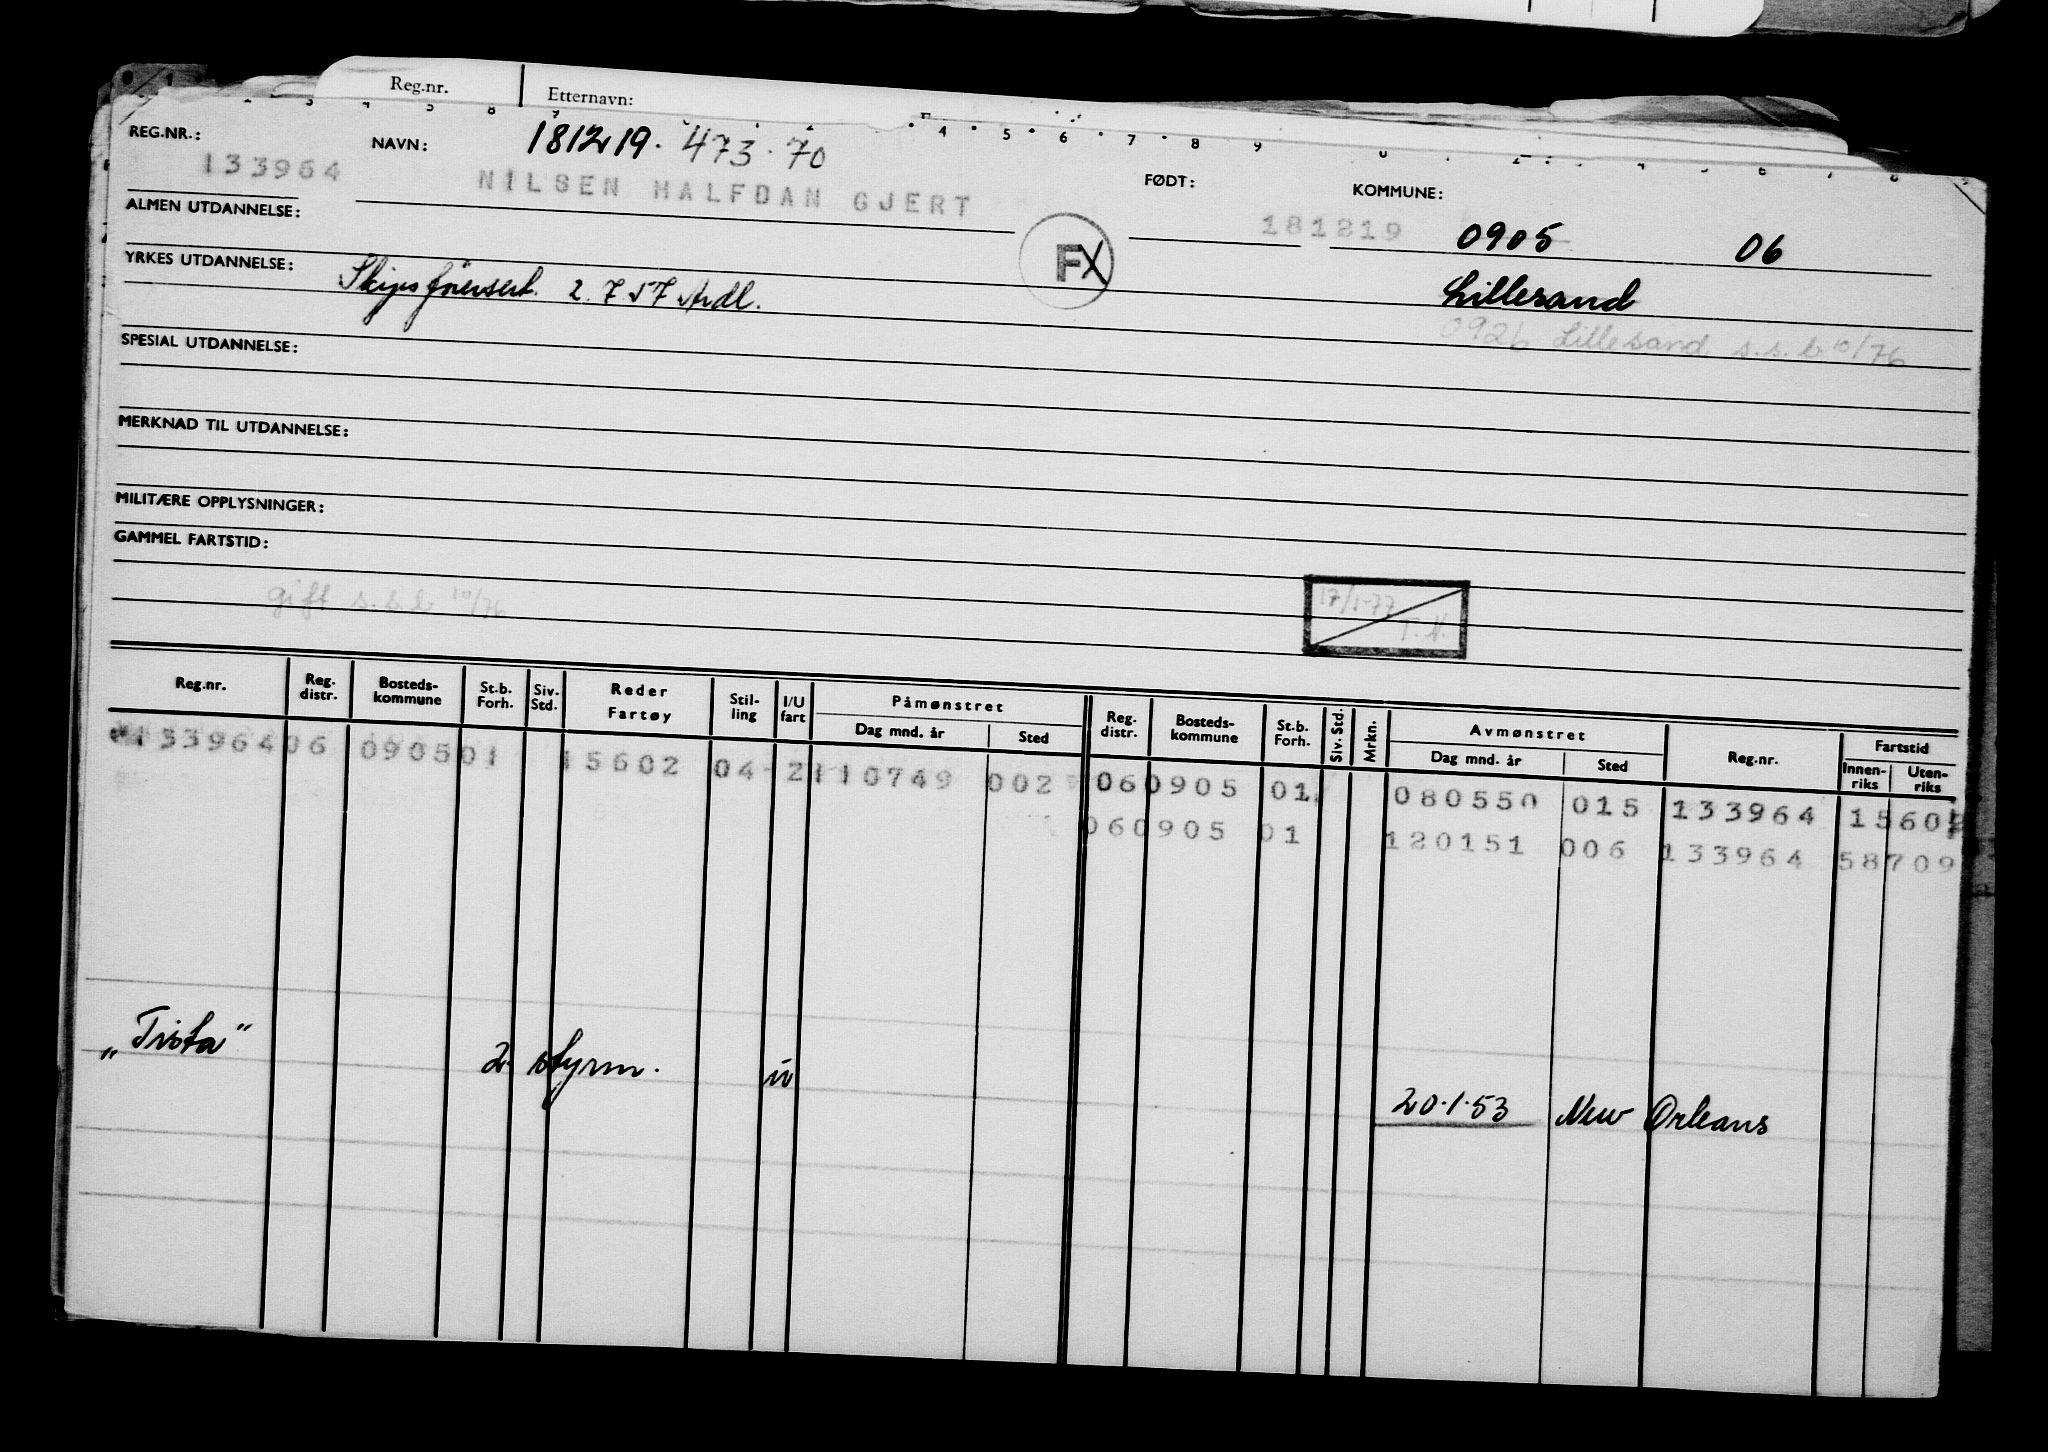 Reg.nr. Etternavn:
REG.NR.: NAVN: 181219. 473.70 FØDT: KOMMUNE:
133964 NILSEN HALFDAN GJERT 181219 0905 06
ALMEN UTDANNELSE:
FX
YRKES UTDANNELSE: Skipsförersert. 2. 7 57 Ardl. Lillesand
0926 Lillesand s.s.b 10/76
SPESIAL UTDANNELSE:
MERKNAD TIL UTDANNELSE:
MILITÆRE OPPLYSNINGER:
GAMMEL FARTSTID:
gift s.s.b 10/76
17/1-77 T.N.
Reg.nr. Reg. distr. Bosteds-kommune St.b. Forh. Siv. Std. Reder Fartøy Stil-ling I/U fart Påmønstret Dag mnd. år Sted Reg. distr. Bosteds-kommune St.b. Forh. Siv. Std. Mrkn. Avmønstret Dag mnd. år Sted Reg.nr. Fartstid Innen-riks Uten-riks
133964 06 0905 01 15602 04 2 110749 002 06 0905 01 080550 015 133964 15602
06 0905 01 120151 006 133964 58709
„Tista" 2. styrm. u 20.1.53 New Orleans